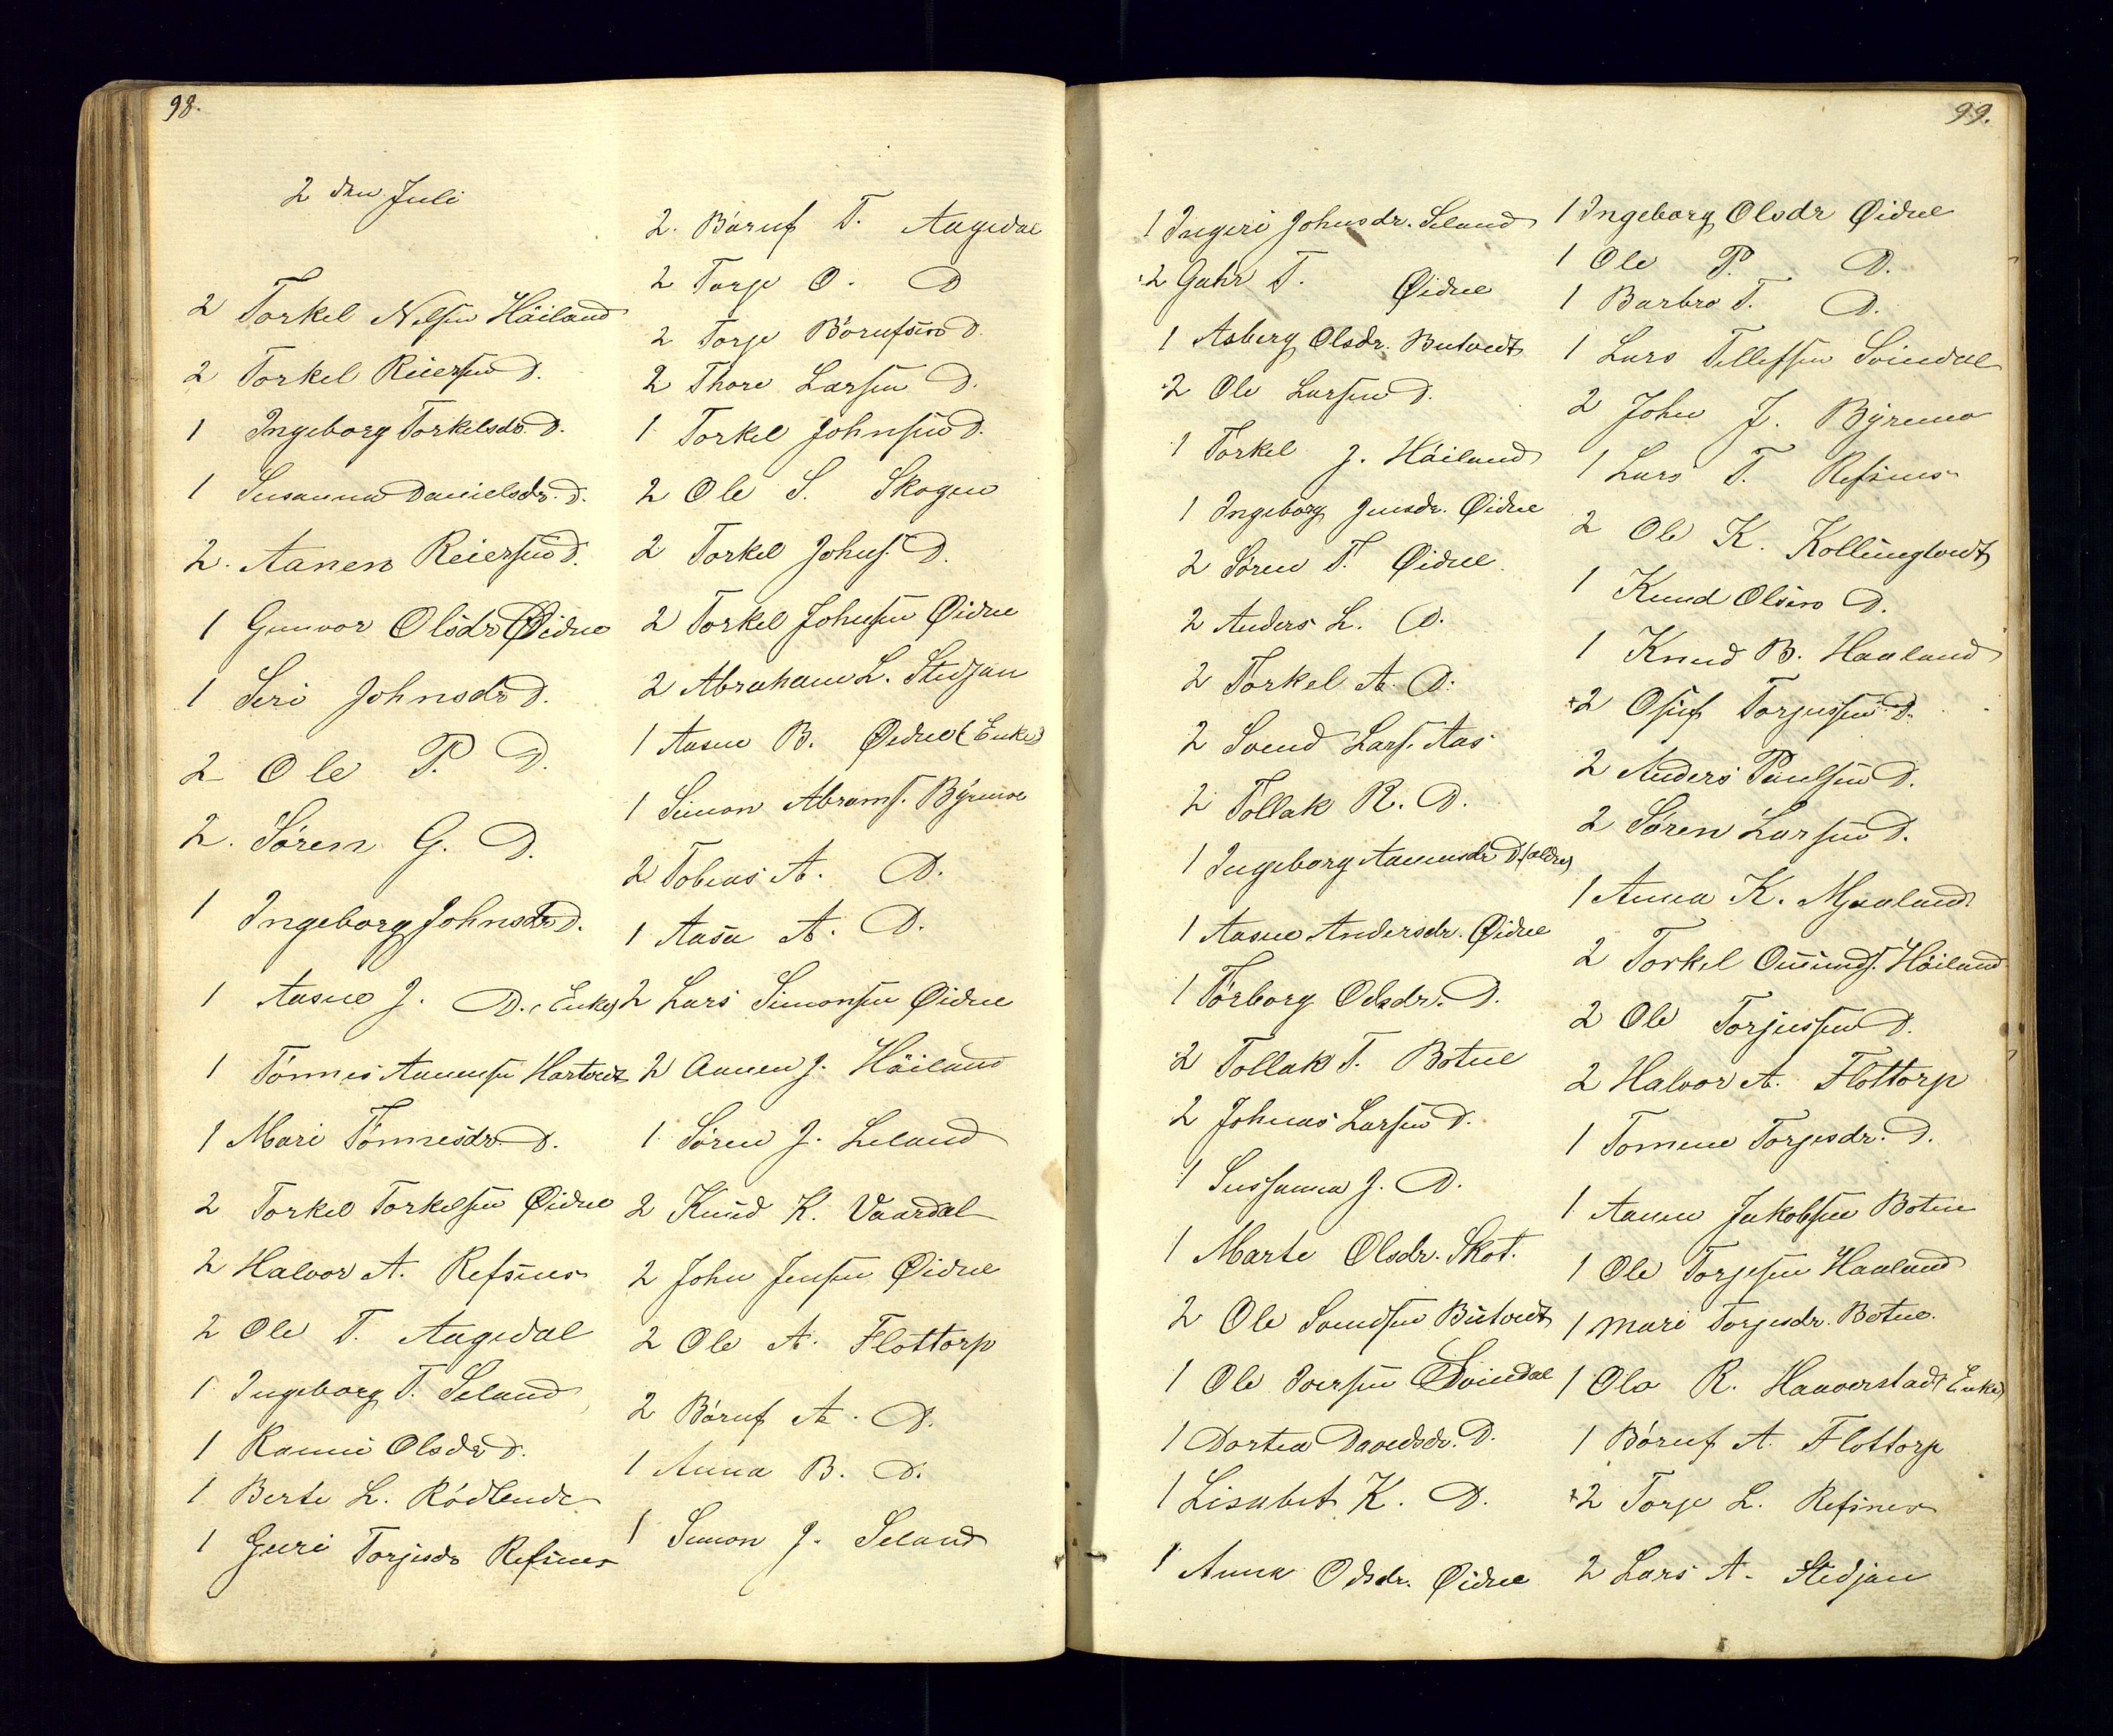 98.
2 den Juli
2 Torkel Nelsen Höiland
2 Torkel Reiersen D.
1 Ingeborg Torkelsdr. D.
1 Susanna Danielsdr. D.
2. Aanen Reiersen D.
1 Gunvor Olsdr Øidne
1 Siri Johnsdr D.
2 Ole P. D.
2. Sören G. D.
1 Ingeborg Johnsdr D.
1 Aasne J. D. (Enke)
1 Tönnes Aanensen Hartvedt
1 Mari Tönnesdr. D.
2 Torkel Torkelsen Øidne
2 Halvor A. Refsnes
2 Ole T. Aagedal
1 Ingeborg T. Seland
1 Ranni Olsdr D.
1 Berte L. Rödlende
1 Guri Torjesdr Refsnes
2. Böruf T. Aagedal
2 Torje O. D
2 Torje Börufsen D.
2 Thore Larsen D.
1 Torkel Johnsen D.
2 Ole S. Skogen
2 Torkel Johns. D.
2 Torkel Johnsen Øidne
2 Abraham L. Stedjan
1 Aasne B. Øidne (Enke)
1 Simon Abrams. Býremo
2 Tobias A. D.
1 Aasa A. D.
2 Lars Simonsen Øidne
2 Aanen J. Höiland
1 Sören J. Leland
2 Knud K. Vaardal
2 John Jensen Øidne
2 Ole A. Flottorp
2 Böruf A. D.
1 Anna B. D.
1 Simon J. Seland
99.
1 Ingeri Johnsdr. Seland
2 Gahr T. Øidne
1 Asberg Olsdr. Butvedt
2 Ole Larsen D.
1 Torkel J. Höiland
1 Ingeborg Jensdr. Øidne
2 Sören T. Øidne
2 Anders L. D.
2 Torkel A. D.
2 Svend Lars. Aas
2 Tollak R. D.
1 Ingeborg Aanensdr D. (ældre)
1 Aasne Andersdr. Øidne
1 Törborg Odsdr. D.
2 Tollak T. Botne
2 Johnas Larsen D.
1 Sussanna J. D.
1 Marte Olsdr. Skot.
2 Ole Svendsen Butvedt
1 Ole Iversen Svindal
1 Dortea Davidsdr. D.
1 Lisabet K. D.
1 Anna Odsdr. Øidne
1 Ingeborg Olsdr Øidne
1 Ole P. D.
1 Barbro T. D.
1 Lars Tellefsen Svindal
2 John J. Býremo
1 Lars T. Refsnes
2 Ole K. Kollingtvedt
1 Knud Olsen D.
1 Knud B. Haaland
2 Osuf Torjussen D.
2 Anders Paulsen D.
2 Sören Larsen D.
1 Anna K. Mjaaland
2 Torkel Omunds. Höiland
2 Ole Torjussen D.
2 Halvor A. Flottorp
1 Tomine Torjesdr. D.
1 Aanen Jakobsen Botne
1 Ole Torjesen Haaland
1 Mari Torjesdr. Botne.
1 Ola R. Haaverstad (Enke)
1 Böruf A. Flottorp
2 Torje L. Refsnes
2 Lars A. Stedjan